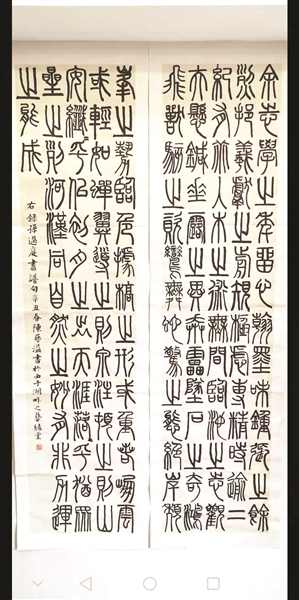 余志學之年留心翰墨味鍾張之餘
烈挹羲獻之前規極慮專精時逾二
紀有乖入木之術無間臨池之志觀
夫懸針垂露之異奔雷墜石之奇鴻
飛獸駭之資鸞舞蛇驚之態絕岸頹
峯之勢臨危據槁之形或重若崩雲
或輕如蟬翼導之則泉注頓之則山
安纖纖乎似初月之出天涯落落乎猶眾
星之列河漢同自然之妙有非力運
之能成
右錄孫過庭書譜句辛丑春陳藝溢書於西子湖畔之藝緣堂